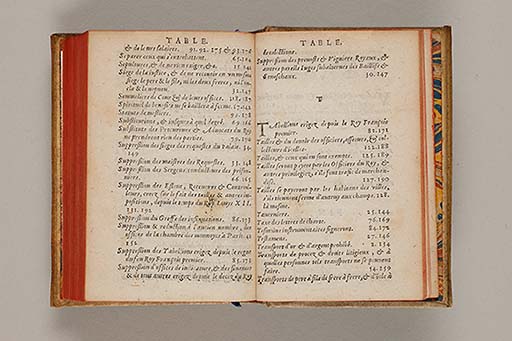 TABLE.
& de leurs salaires. 91. 92. 275 & 93.276
Separer ceux qui s'entrebattent. 65.104
Sepultures, & de mortuaiges, &c. 23.41
Siege de la justice, & de ne recevoir en un mesme
siege le pere & le filz, ni les deux freres, ni l'on
cle & le nepveu. 32.147
Sommeliers de Cour & de leurs offices. 218.187
Spirituel de benefice ne se baillera à ferme. 67.143
Statuts de mestiers. 92.178
Substitutions, & jusques à quel degré. 69.166
Substituts des Procureurs & Advocats du Roy
ne prendront rien des parties. 79.150
Suppression des sieges des requestes du palais. 34.
149
Suppression des maistres des Requestes. 33.148
Suppression des Sergens conducteurs des prison-
niers. 66.165
Suppression des Esleuz, Receveurs & Contrerol-
leurs, creez sur le fait des tailles & autres im-
positions, depuis le temps du Roy Louys XII.
231. 192
Suppression du Greffe des insinuations. 86.173
Suppression & reduction à l'ancien nombre, des
offices de la chambre des monnoyes à Paris. 41
152.
Suppression des Tabellions erigez depuis le regne
du feu Roy François premier. 83.171
Suppression d'offices de judicature, & des finances
& de tous autres erigez depuis le decez du Roy
TABLE.
Suppression des prevosts & Viguiers Royaux, &
autres pareils Juges subalternes des Baillifs &
Seneschaux. 30.147
T
TAbellions erigez depuis le Roy François
premier. 83.171
Tailles & du nombre des officiers, assesseurs, & col-
lecteurs d'icelles. 122.188
Tailles, & ceux qui en sont exempts. 125.189
Tailles seront payees par les Officiers du Roy, &
autres privilegiez, s'ilz font trafic de marchan-
dise. 127.190
Tailles se payeront par les habitans des villes,
s'ilz tiennent ferme d'autruy aux champs. 128.
là mesme.
Taverniers. 25.144
Taux des lettres de cheres. 76.169
Tesmoins instrumentaires signeront. 84.172
Testamens. 27.146
Transport d'or & d'argent prohibé. 2.134
Transports de procez & droits litigieux, & à
quelles personnes telz transports ne se peuvent
faire. 54.159
Transports de pere à filz de frere à frere, & d'icele à